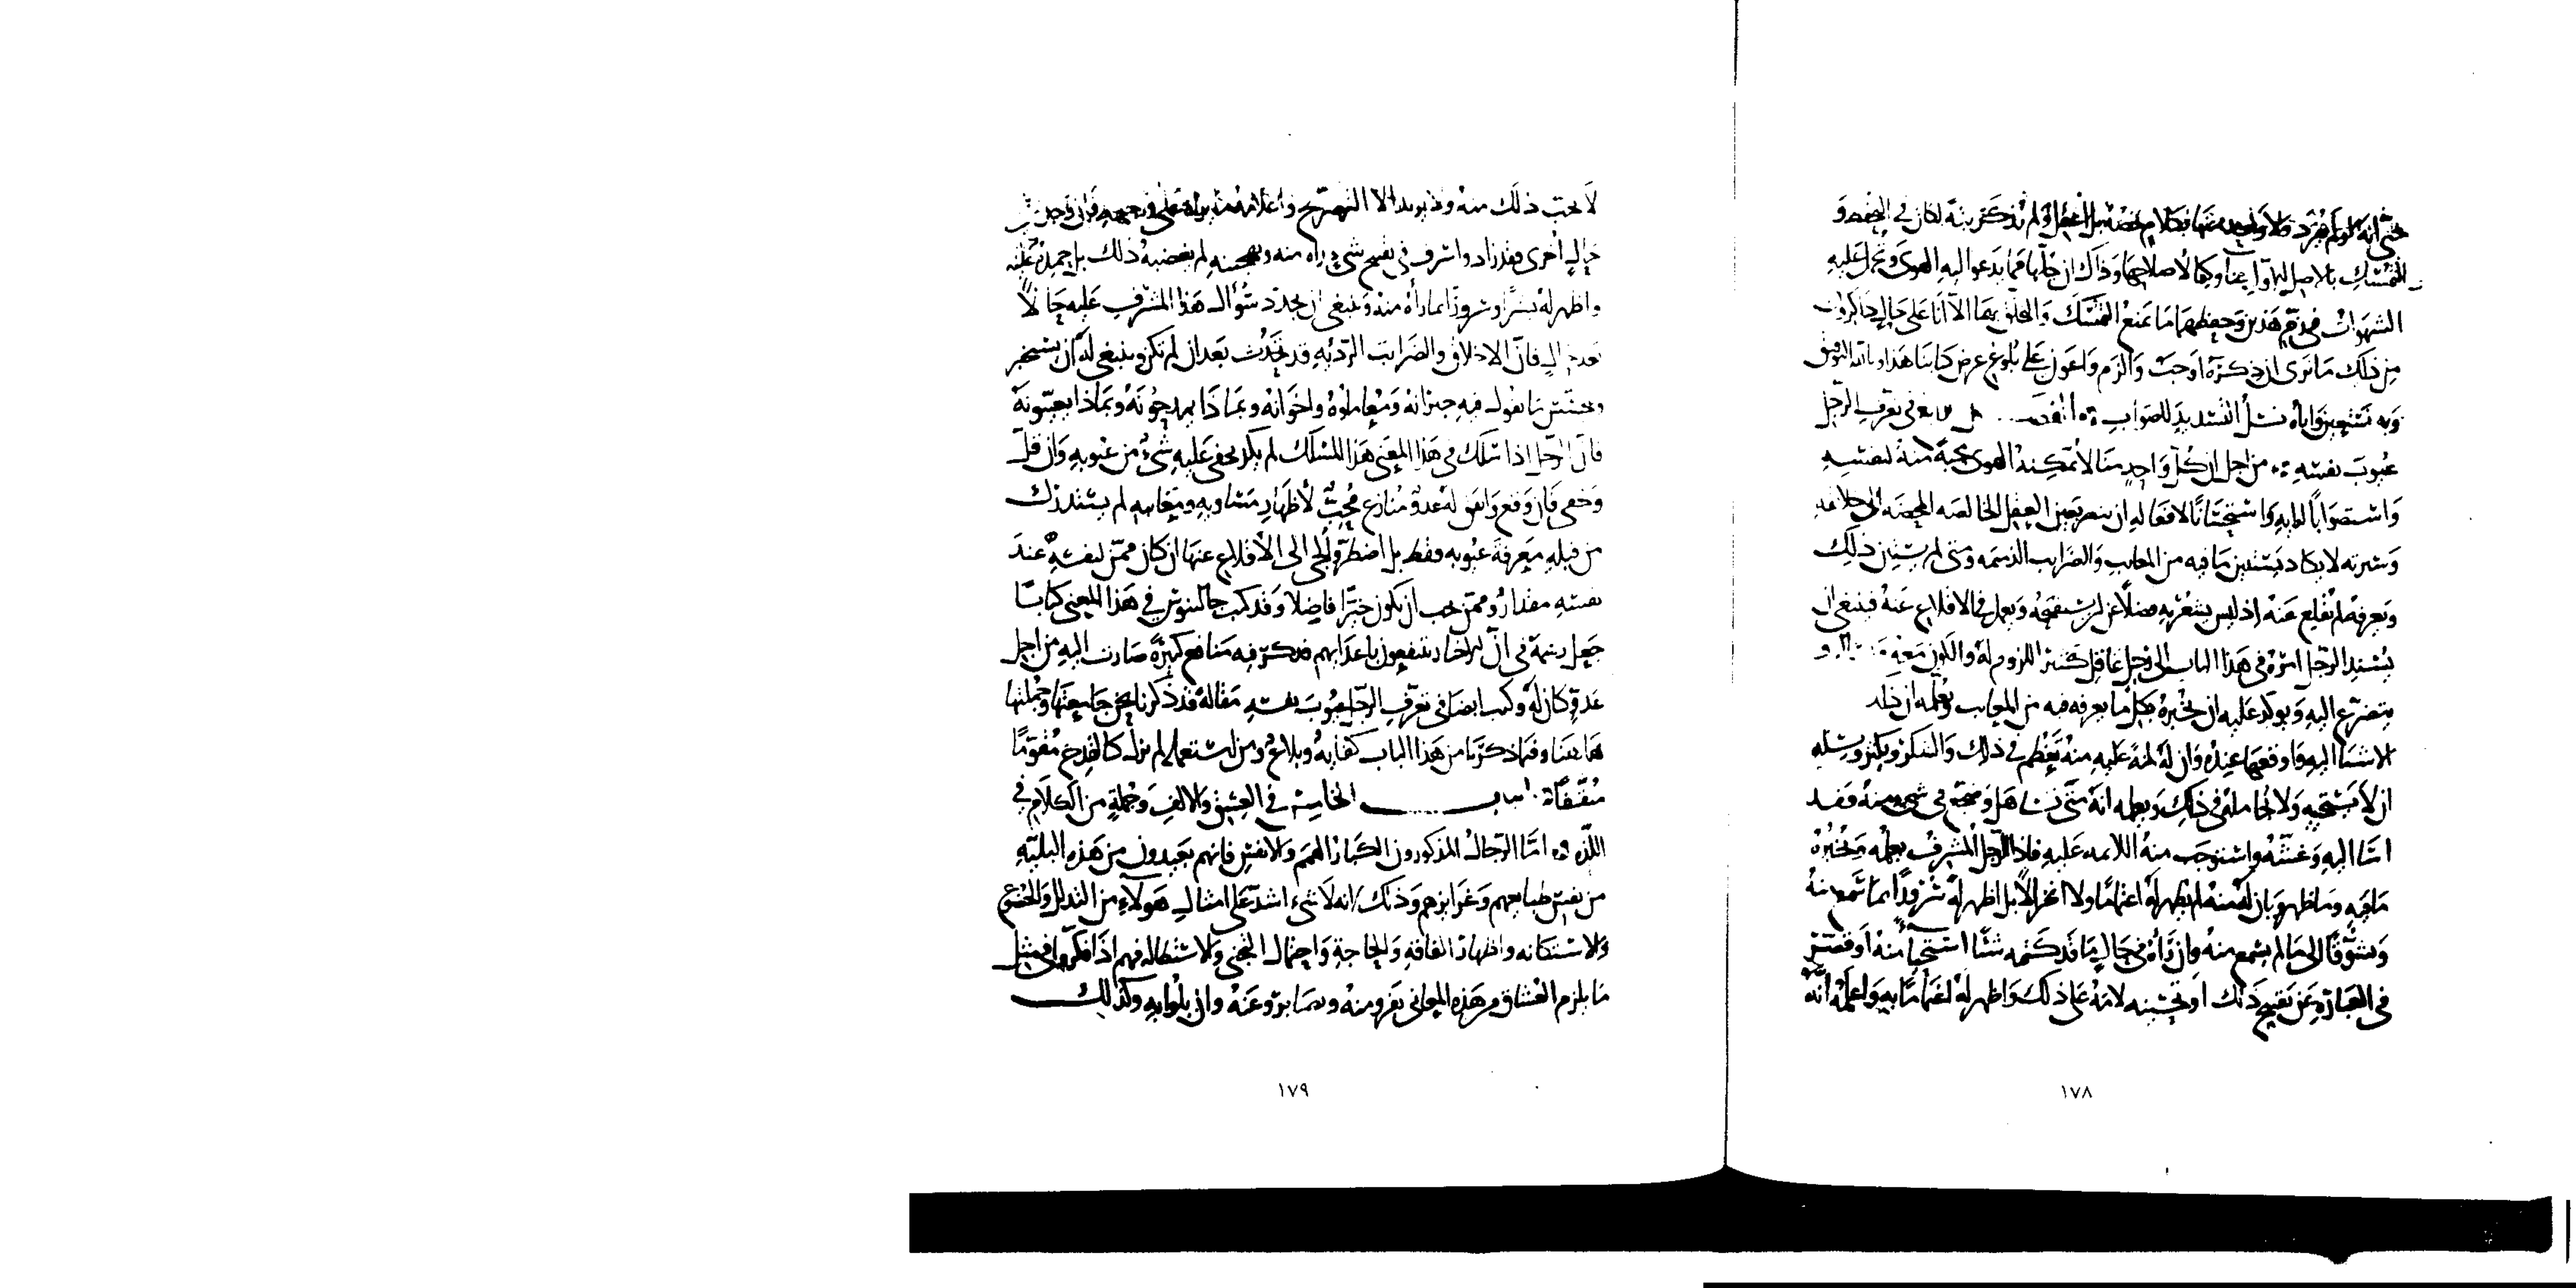 حتى انه لو لم نفرد كلاما واحد منها بكلام يخصه بل اغفل ولم نذكر بتة لكان في التحفظ و
التمسك بالاصل الاول غنا وكفا لاصلاحها وذاك ان جلها مما يدعوا اليه الهوى وتحمل عليه
الشهوات فى زم هذين وحفظهما ما يمنع التمسك والتخلق بهما الا انا على حال ذاكرون
من ذلك ما نرى ان ذكره اوجب والزم واعون على بلوغ غرض كتابنا هذا وبالله التوفيق
وبه نستعين واياه نسل التسديد للصواب الفصل الرابع في تعرف الرجل
عيوب نفسه من اجل ان كل واحد منا لا يمكنه الهوى محبة منه لنفسه
واستصوابا لرايه واستحسانا لافعاله ان ينظر بعين العقل الخالصه المحضه الى خلايقه
وسيرته لا يكاد يستبين ما فيه من المعايب والضرايب الذميمه ومتى لم يستبين ذلك
ويعرفه لم يقلع عنه اذ ليس يشعر به فضلا عن ان يستقبحه ويعمل في الاقلاع عنه فينبغي ان
يسند الرجل امره في هذا الباب الى رجل عاقل كثير اللزوم له والكون معه و
يتضرع اليه ويوكد عليه ان يخبره بكل ما يعرفه فيه من المعايب ويعلمه ان ذلك
الاشيا اليه واوقعها عنده وان له لمنة عليه منه تعظم في ذلك والشكر ويكثر ويسئله
ان لا يستحييه ولا يجامله في ذلك ويعلمه انه متى تساهل وضجع في شي منه فقد
اسا اليه وغشه واستوجب منه اللايمه عليه فاذا الرجل المشرف يعلمه ويخبره
ما فيه وما ظهر وبان له منه لم يظهر له اغتماما ولا انخزالا بل اظهر له سرورا بما سمع منه
وتشوقا الى ما لم يسمع منه وان راه في حال ما قد كتمه شيا استحيا منه او قصر
في العبارة عن تقبيح ذلك او تحسينه لامه على ذلك واظهر له اغتماما به واعلمه انه
١٧٨
لا يحب ذلك منه ولا يريد الا التصريح واعلامه ما يراه على وجهه فان وجده في
حال اخرى فقد زاد واسرف في تقبيح شي راه منه وتهجينه لم يغضبه ذلك بل احمده عليه
واظهر له بشرا وسرورا بما راه منه وينبغي ان يجدد سؤال هذا المشرف عليه حالا
بعد حال فان الاخلاق والضرايب الرديه قد تحدث بعد ان لم تكن وينبغي له ان يستخبر
ويتحسس ما يقول فيه جيرانه ومعاملوه واخوانه وبماذا يمدحونه وبماذا يعيبونه
فان الرجل اذا سلك في هذا المعنى هذا المسلك لم يكد يخفى عليه شيء من عيوبه وان قل
وخفى فان وقع واتفق له عدو منازع محب لاظهار مساويه ومعايبه لم يستفد ذلك
من قبله معرفة عيوبه فقط بل اضطر والجى الى الاقلاع عنها ان كان ممن لنفسه عند
نفسه مقدار وممن يحب ان يكون خيرا فاضلا وقد كتب جالينوس في هذا المعنى كتابا
جعل رسمه في ان الاخيار ينتفعون باعدايهم فذكر فيه منافع كثيرة صارت اليه من اجل
عدو كان له وكتب ايضا في تعرف الرجل عيوب نفسه مقالة قد ذكرنا نحن جامعتها وجملتها
هاهنا وفيما ذكرنا من هذا الباب كفاية وبلاغ ومن استعمله لم يزل كالقدح مقوما
مثقفا الباب الخامس في العشق والالف وجملة من الكلام في
اللذه اما الرجال المذكورون الكبار الهمم والانفس فانهم بعيدون من هذه البليه
من نفس طبايعهم وغرايزهم وذلك انه لا شيء اشد على امثال هولاء من التذلل والخضوع
والاستكانه واظهار الفاقة والحاجة واحتمال التجني والاستطاله فهم اذا فكروا في مثل
ما يلزم العشاق من هذه المعاني نفروا منه وتصابروا عنه وان بلوا به وكذلك
١٧٩